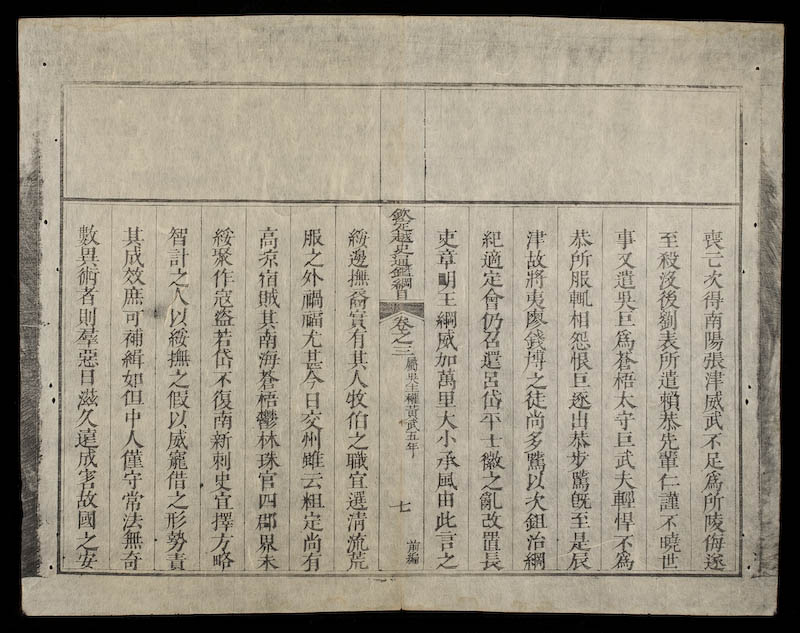 喪亡次得南陽張津威武不足爲所陵侮遂
至殺沒後劉表所遣賴恭先輩仁謹不曉世
事又遣吳巨爲蒼梧太守巨武夫輕悍不爲
恭所服輒相怨恨巨逐出恭步騭旣至是辰
津故將夷廖錢博之徒尚多騭以次鉏治綱
紀適定會仍召還呂岱平士徽之亂改置長
吏章明王綱威加萬里大小承風由此言之
欽定越史通鑑綱目 卷之三 屬吳主權黃武五年 七 前編
綏邊撫裔實有其人牧伯之職宜選淸流荒
服之外禍福尤甚今日交州雖云粗定尚有
高凉宿賊其南海蒼梧鬱林珠官四郡界未
綏聚作寇盜若岱不復南新刺史宜擇方略
智計之人以綏撫之假以威寵借之形勢責
其成效庶可補緝如但中人僅守常法無奇
數異術者則羣惡日滋久遠成害故國之安